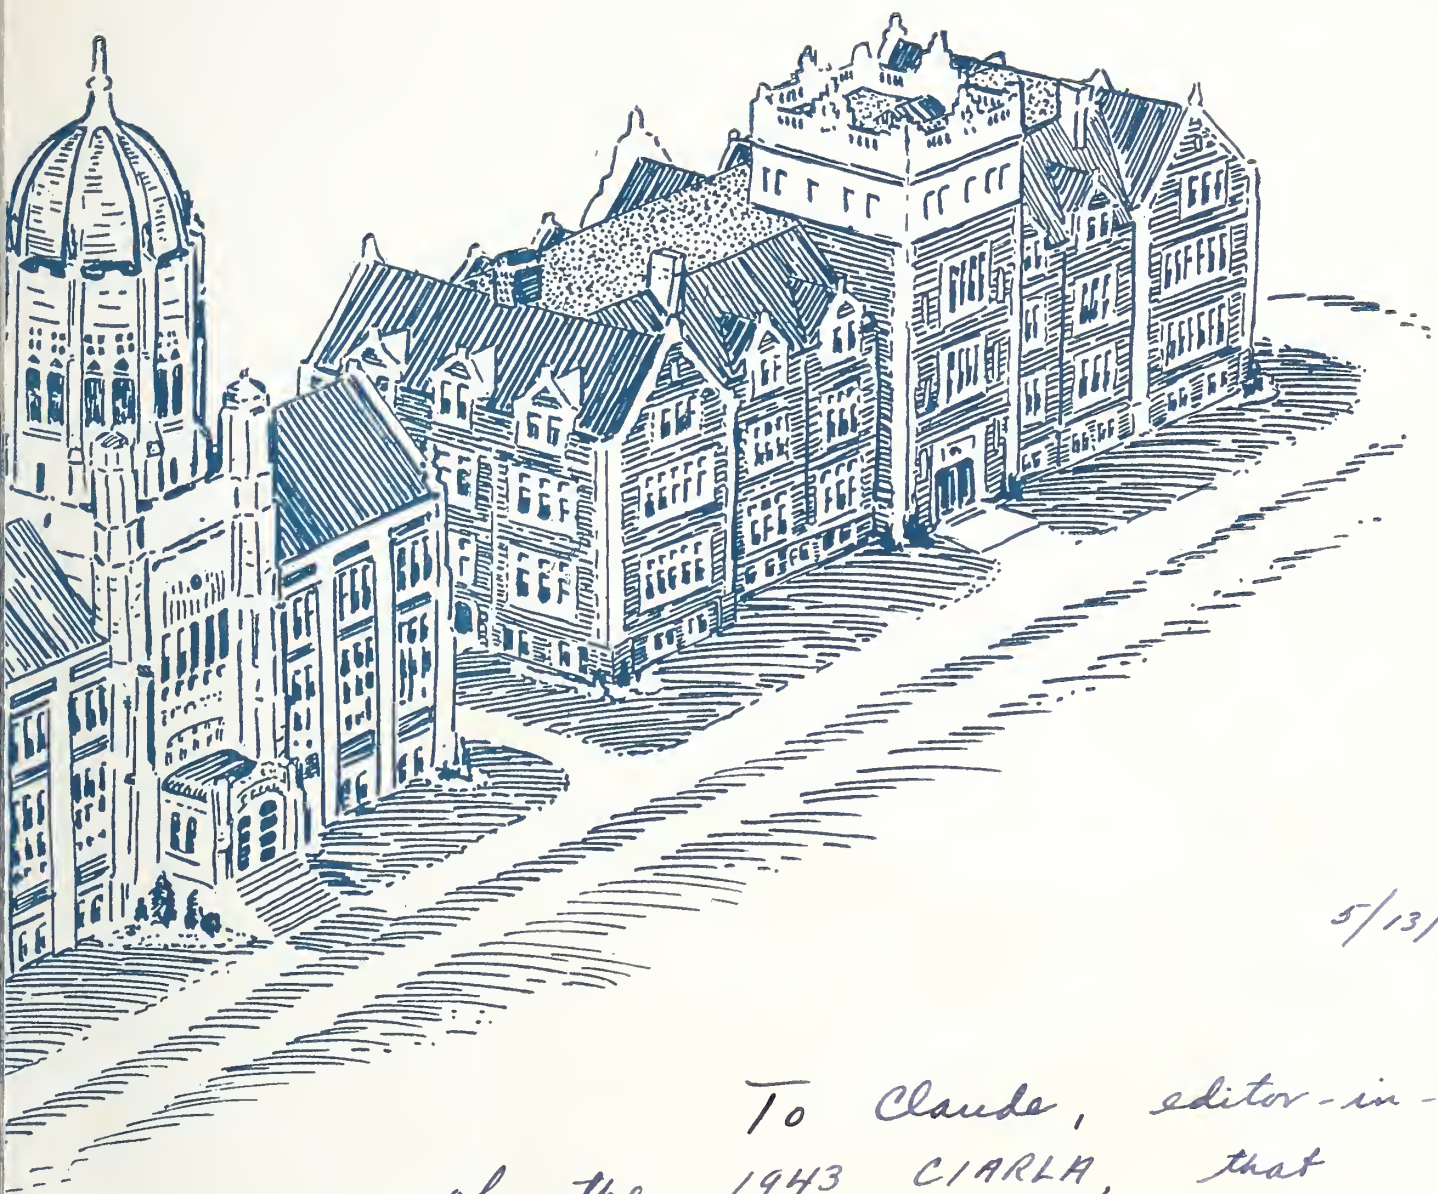 5/13/
To Claude, editor-in-
of the 1943 CIARLA, that